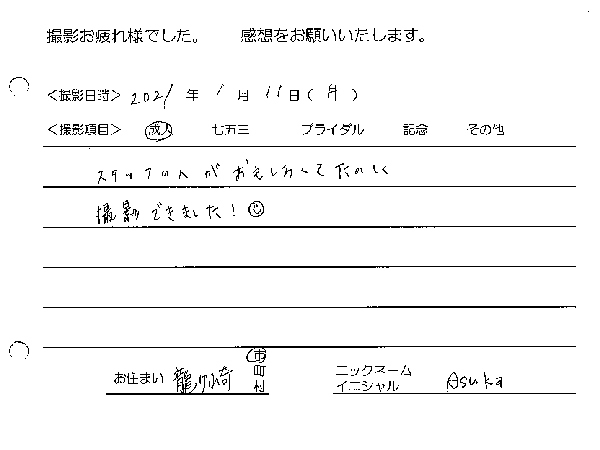 撮影お疲れ様でした。 感想をお願いいたします。
＜撮影日時＞ 2021 年 1 月 11 日 ( 月 )
＜撮影項目＞ 成人 七五三 ブライダル 記念 その他
スタッフの人がおもしろくてたのしく
撮影できました！☺
お住まい 龍ケ崎 市 町 村
ニックネーム イニシャル Asuka